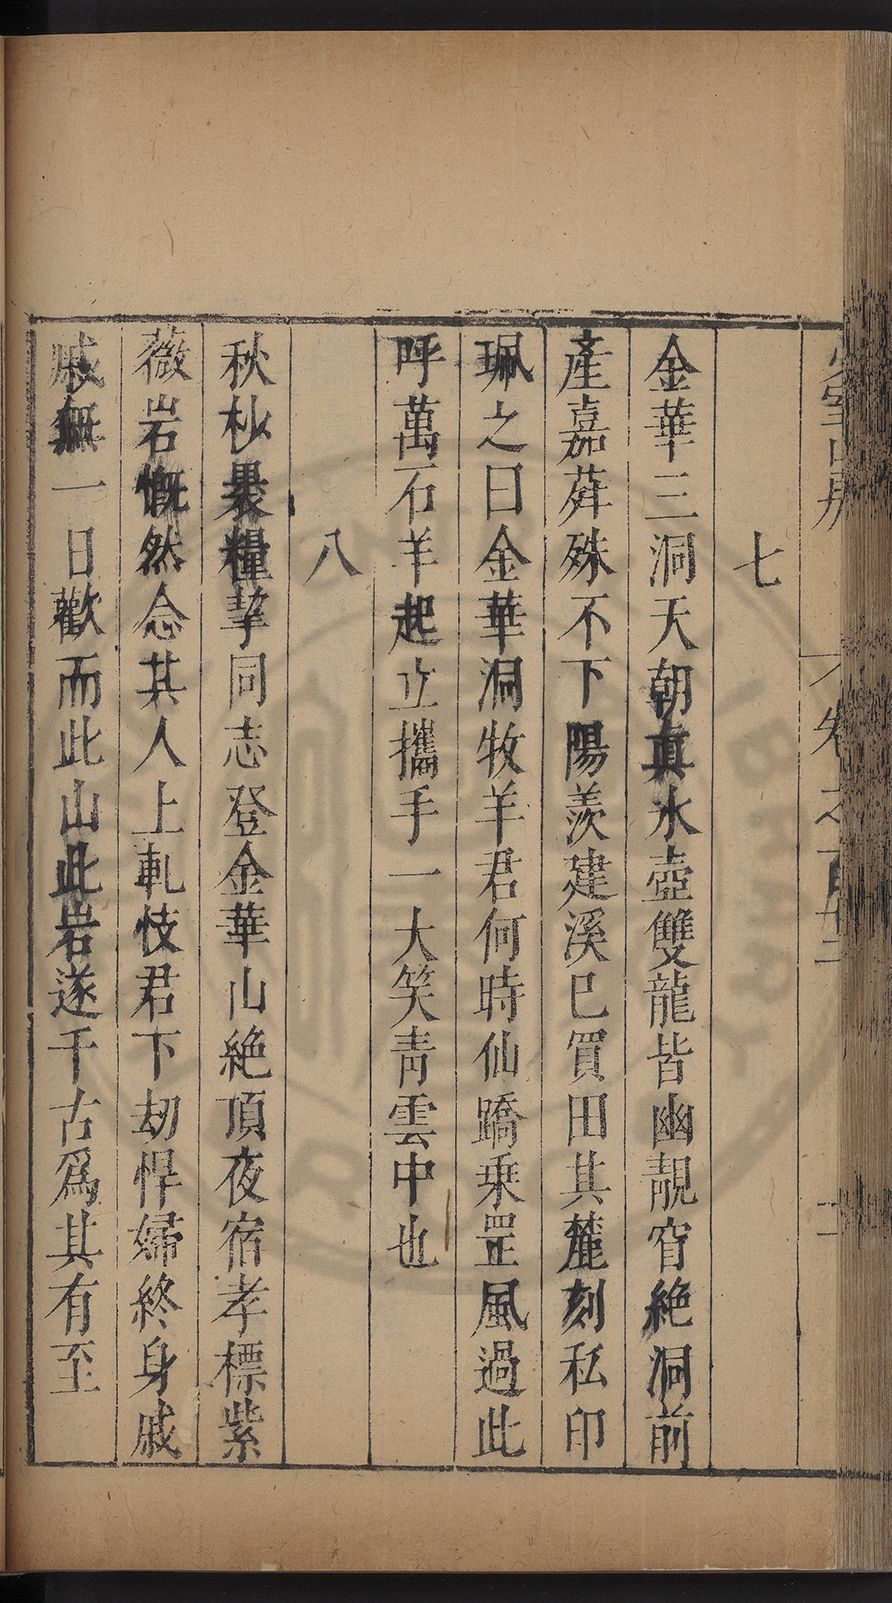 少室山房 卷之百十二
七
金華三洞天朝真水壺雙龍皆幽靚窅絶洞前
產嘉薜殊不下陽羨建溪巳買田其麓刻私印
珮之曰金華洞牧羊君何時仙蹻乗罡風過此
呼萬石羊起立攜手一大笑青雲中也
八
秋杪褁糧挈同志登金華山絶頂夜宿孝標紫
薇岩慨然念其人上軋忮君下刼悍婦終身戚
戚無一日歡而此山此岩遂千古爲其有至